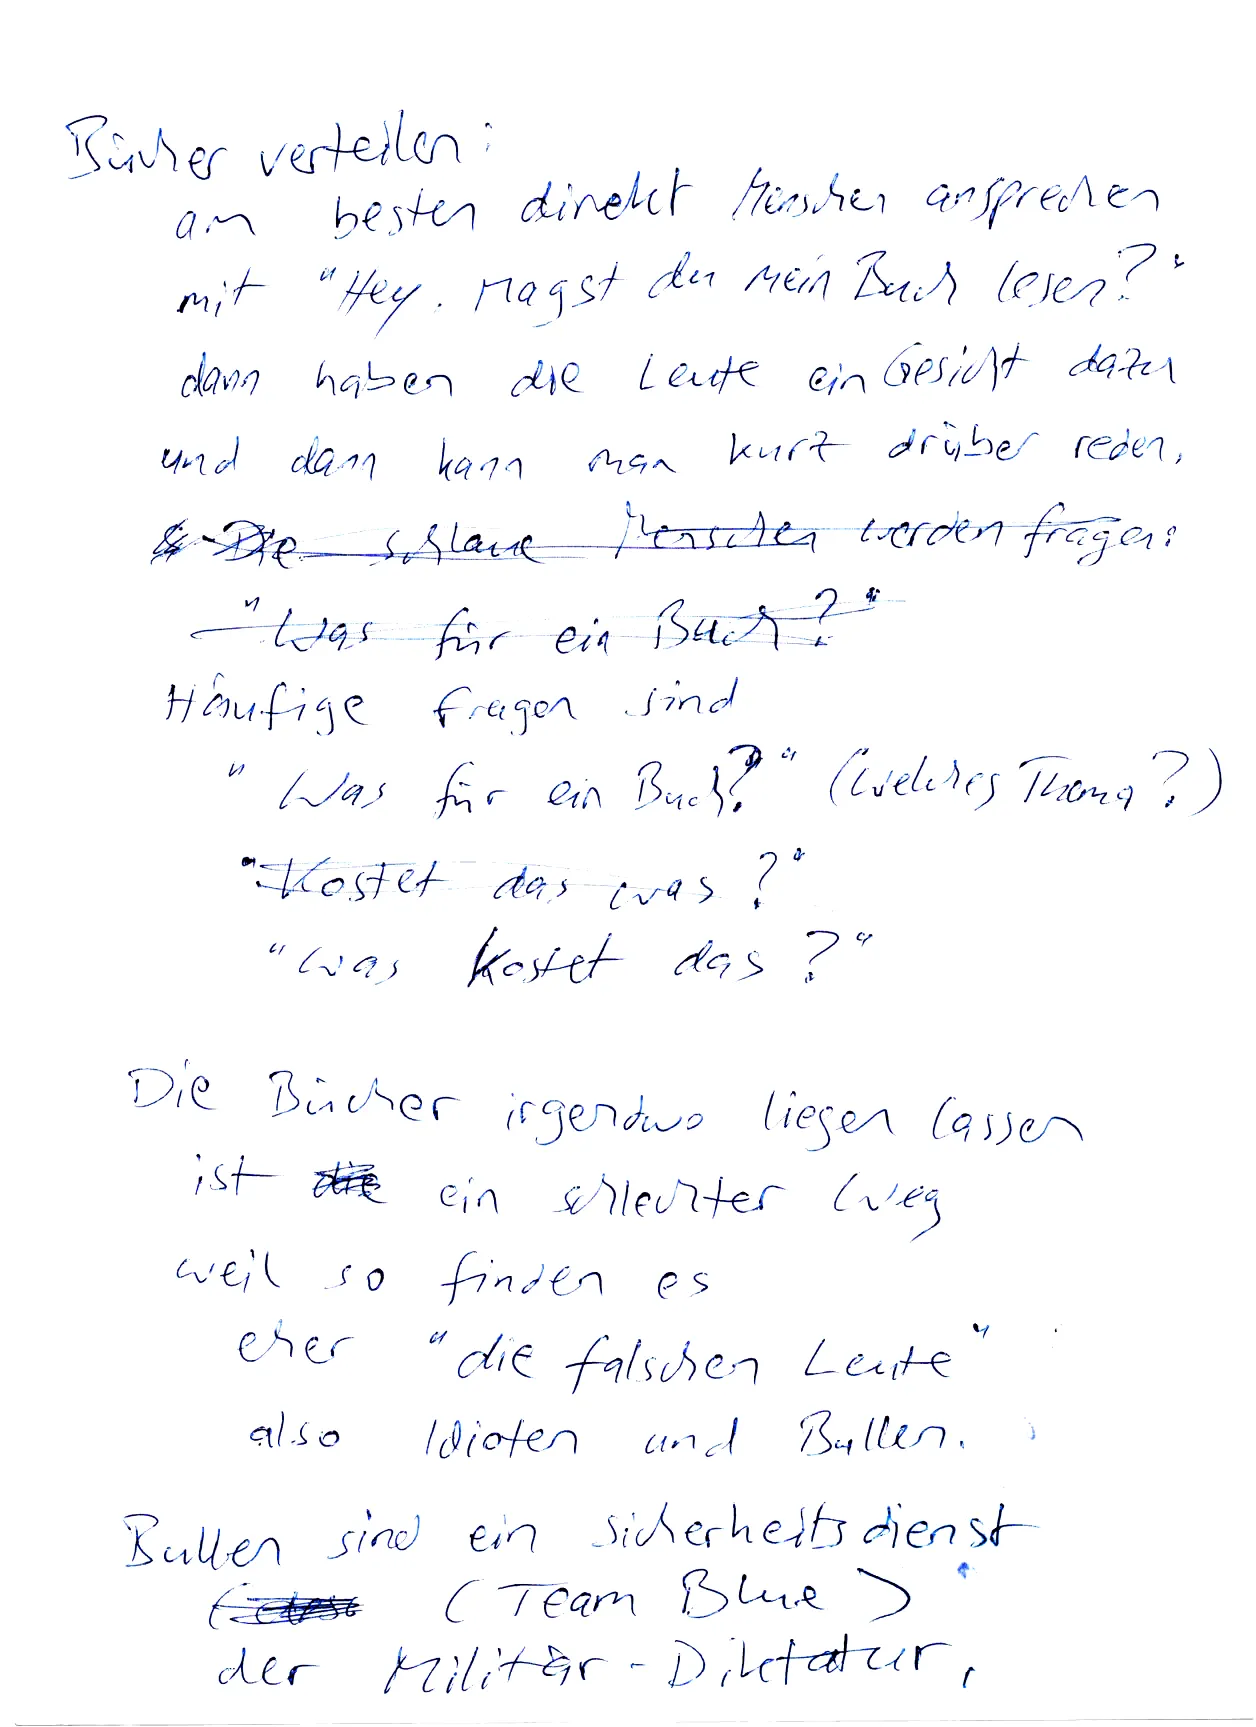 Bücher verteilen:
am besten direkt Menschen ansprechen
mit "Hey. Magst du mein Buch lesen?"
dann haben die Leute ein Gesicht dazu
und dann kann man kurz drüber reden.
Die schlaue Menschen werden fragen:
"Was für ein Buch?"
Häufige Fragen sind
"Was für ein Buch?" (Welches Thema?)
"Kostet das was?"
"Was kostet das?"
Die Bücher irgendwo liegen lassen
ist ein schlechter Weg
weil so finden es
eher "die falschen Leute"
also Idioten und Bullen.
Bullen sind ein Sicherheitsdienst
(Team Blue)
der Militär-Diktatur.